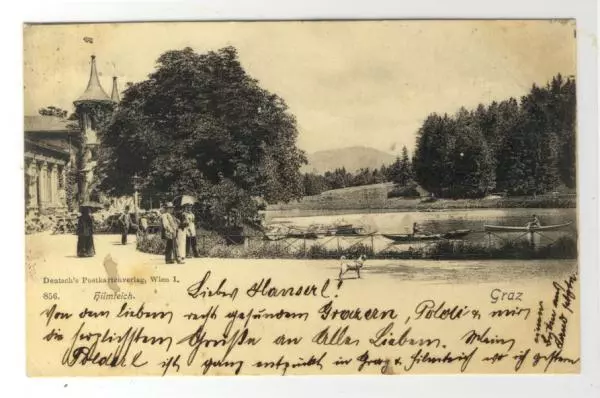 Deutsch's Postkartenverlag, Wien I.
856. Hilmteich.
Graz
Liebes Hanserl!
Von dem lieben recht gesunden Grazern, Poldi & mir
die herzlichsten Grüße an Alle Lieben. Mein
Polderl ist ganz entzückt in Graz & Hilmteich wo ich gestern